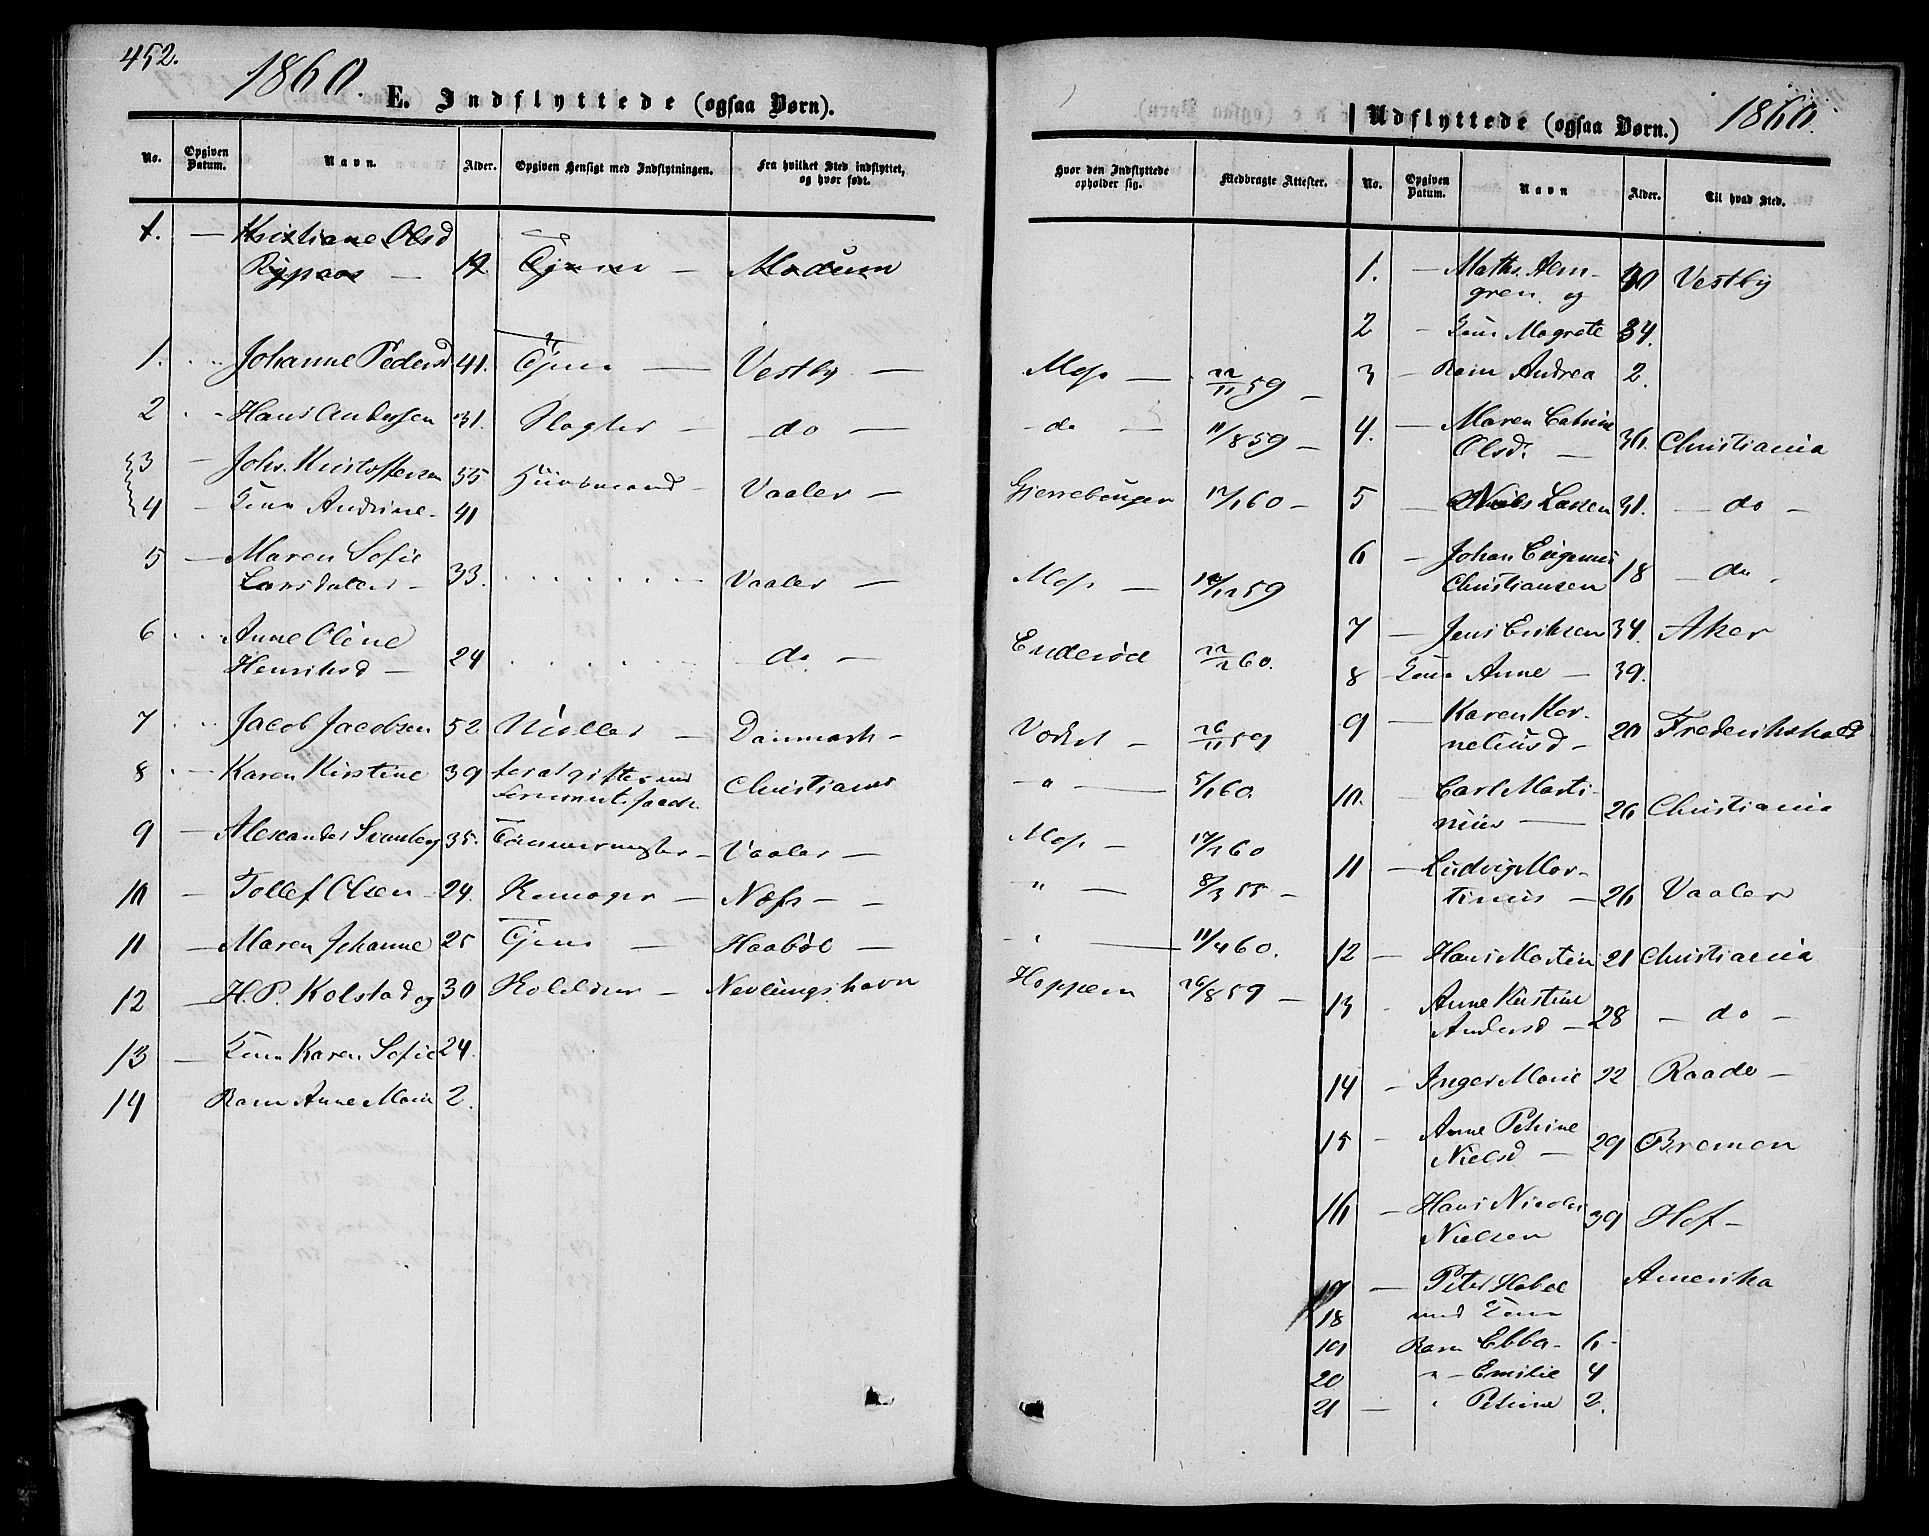 452.
1860.
E. Indflyttede (ogsaa Børn).
No.
Opgiven Datum.
Navn.
Alder.
Opgiven Hensigt med Indflytningen.
Fra hvilket Sted indflyttet, og hvor født.
1. — Kristiane Olsd
Rypaas — 19. Tjene — Modum
1. Johanne Pedersd. 41. Tjene — Vestby —
2 Hans Andersen 31. Slagter — do —
3 — Johs. Kristoffersen 55 Huusmand — Vaaler —
4 — Kone Andrine — 41
5 — Maren Sofie
Larsdatter — 33. Vaaler —
6 Anne Oline
Henriksd — 24 do —
7 Jacob Jacobsen 52 Møller — Danmark —
8 — Karen Kirstine 39 Christiania
9 — Alexander Svanberg 35. Tømmermester — Vaaler —
10 — Tollef Olsen — 24. Komager — Næss —
11 — Maren Johanne 25 Tjene — Haabøl —
12 — H. P. Kolstad og 30 — Nevlungshavn
13 — Kone Karen Sofie 24.
14 Barn Anne Marie 2.
Udflyttede (ogsaa Børn.)
1860.
Hvor den Indflyttede opholder sig.
Medbragte Attester.
No.
Opgiven Datum.
Navn
Alder.
Til hvad Sted.
1. — Maths. Alm-
gren og 40 Vestby
2 Kone Magrete 34.
Moss — 22/11 59 — 3 — Barn Andrea 2.
do — 11/8 59 — 4. — Maren Catrine
Olsd. — 36. Christiania
17/1 60 — 5 — Niels Larsen 31. — do —
6 — Johan Eugenius
Christiansen 18 — do .
Moss — /12 59
7 — Jens Eriksen 34. Aker
Enderød 22/2 60. 8 — Kone Anne — 39.
9 — Karen Kor-
neliusd — 20 Frederikshald
26/11 59
" — 5/1 60. 10. Carl Marti-
nius — 26 Christiania
Moss — 17/1 60
11 — Ludvig Mar-
tinius — 26 Vaaler
" — 8/3 55 —
" — 11/4 60. 12 — Hans Martin 21 Christiania
Hoppern 26/8 59 — 13 Anne Kirstine
Andersd — 28 — do —
14 — Inger Marie 22 Raade —
15 — Anne Petrine
Nielsd — 29 Bremen
16 — Hans Nicolai
Nielsen 39 Hof —
17 — Peter Hobøl Amerika
18 med Kone
19 Barn Ebba — 6 —
20 " — Emilie 4
21 — " Petrine 2.